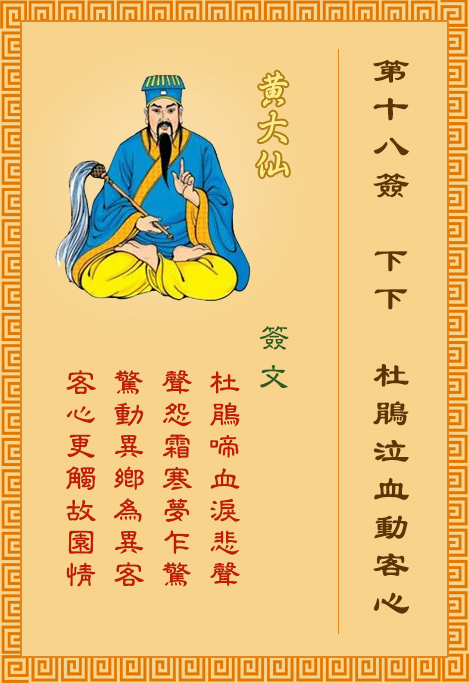 第十八簽　下下　杜鵑泣血動客心
黃大仙
簽文
杜鵑啼血淚悲聲
聲怨霜寒夢乍驚
驚動異鄉為異客
客心更觸故園情